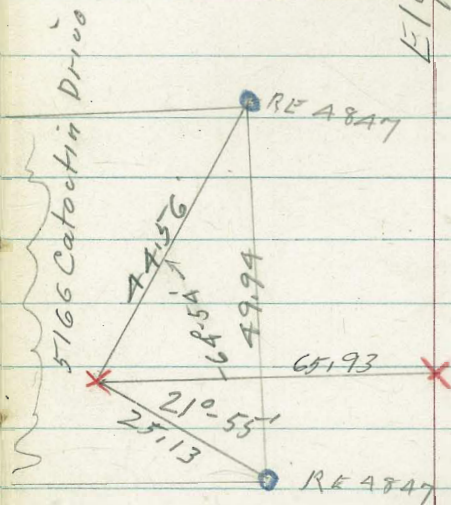 5166 Catoctin Drive
RE 4847
44.56
64°-54'
49.94
65.93
21°-55'
25.13
RE 4847